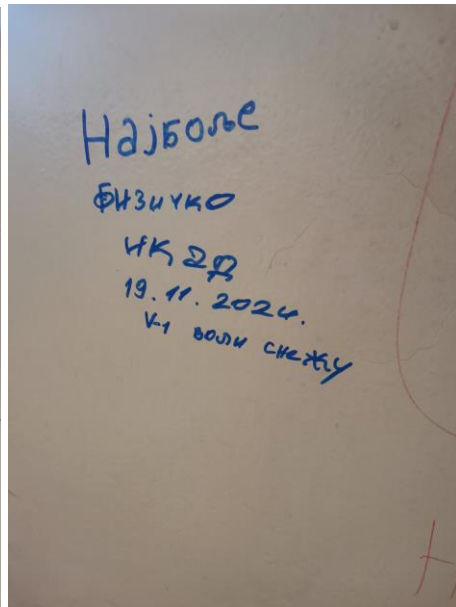 Најбоље
физичко
ИКАД
19. 11. 2024.
V-1 воли снежу